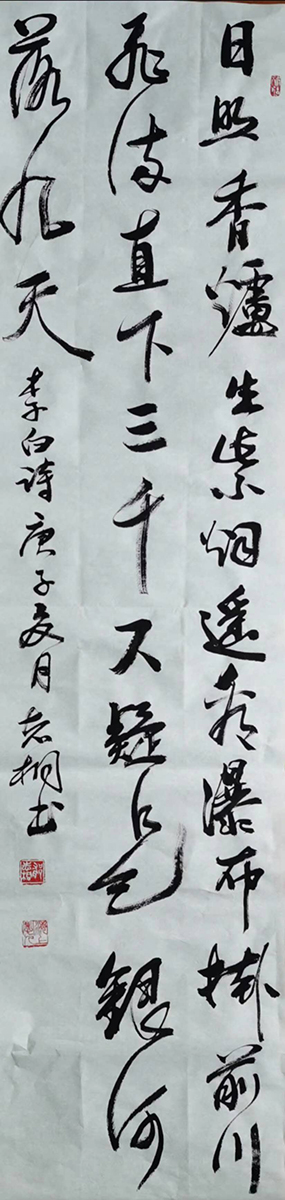 日照香爐生紫烟遥看瀑布掛前川
飛流直下三千尺疑是銀河
落九天
李白詩庚子夏月志桐書